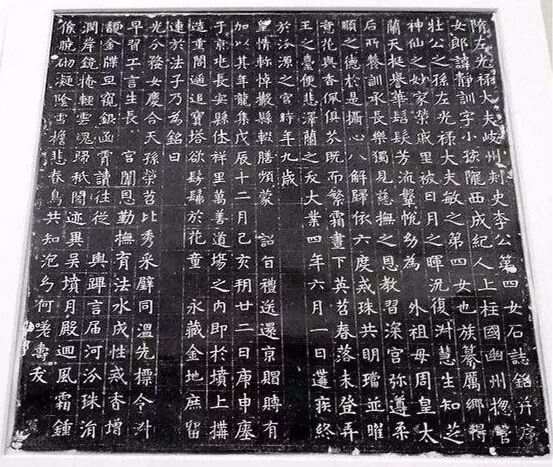 隋左光祿大夫岐州刺史李公第四女石誌銘并序
女郎諱靜訓字小孩隴西成紀人上柱國幽州摠管
壯公之孫左光祿大夫敏之第四女也族纂厲鄉得
神仙之妙家榮戚里被日月之暉況復淑慧生知芝
蘭天挺譽華髫髮芳流鞶帨幼為 外祖母周皇太
后所養訓承長樂獨見慈撫之恩教習深宮弥遵柔
順之德於是攝心八解歸依六度戒珠共明璫並曜
意花與香佩俱芬既而繁霜晝下英苕春落未登弄
玉之臺便悲澤蘭之夭大業四年六月一日遘疾終
於汾源之宮時年九歲
皇情軫悼撤縣輟膳頻蒙 詔旨禮送還京賵賻有
加以其年龍集戊辰十二月己亥朔廿二日庚申瘞
于京兆長安縣休祥里萬善道場之內即於墳上構
造重閣遙追寶塔欲髣髴於花童 永藏金地庶留
連於法子乃為銘曰
光分婺女慶合天孫榮苕比秀采璧同溫先標令淑
早習工言生長 宮闈恩勤撫育法水成性戒香增
馥金牒旦窺銀函宵讀往從 輿蹕言届河汾珠涓
潤岸鏡掩輕雲魂歸祇閣迹異吳墳月殿迴風霜鍾
候曉砌凝陰雪檐悲春鳥共知泡幻何嗟壽夭